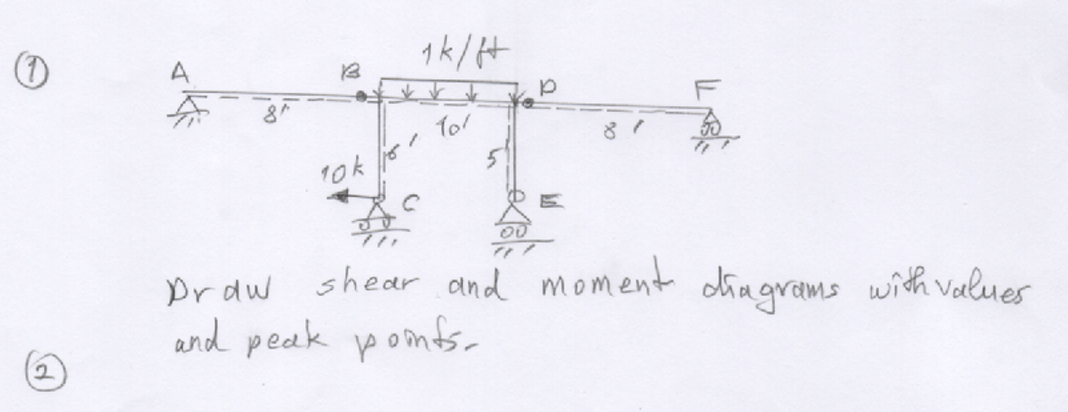 1
1k/ft
A
B
D
F
8'
10'
8'
6'
5'
10k
C
E
Draw shear and moment diagrams with values
and peak points.
2